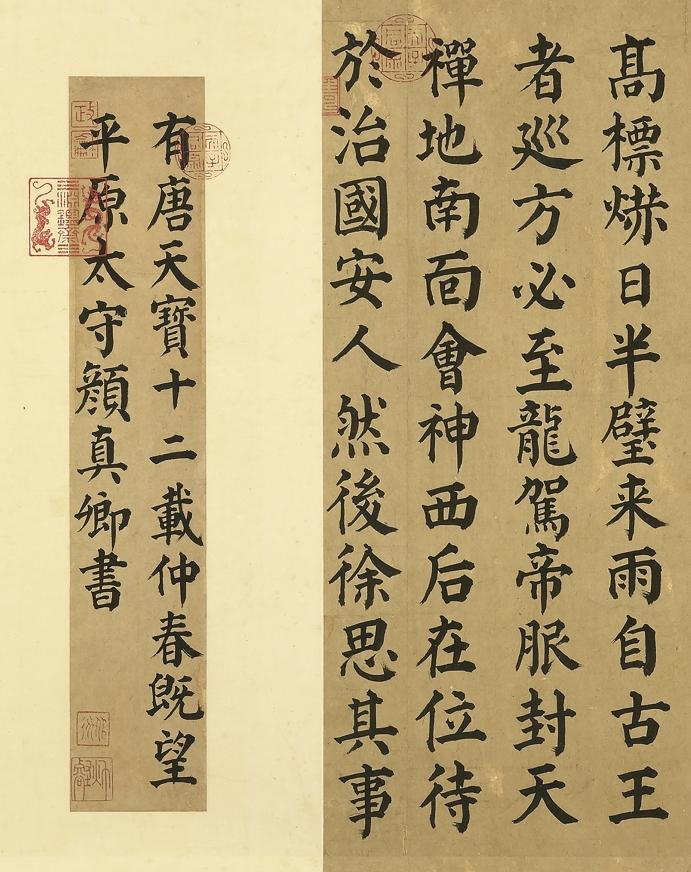 髙標爀日半壁来雨自古王
者廵方必至龍駕帝服封天
禪地南面會神西后在位待
於治國安人然後徐思其事
有唐天寶十二載仲春既望
平原太守顔真卿書